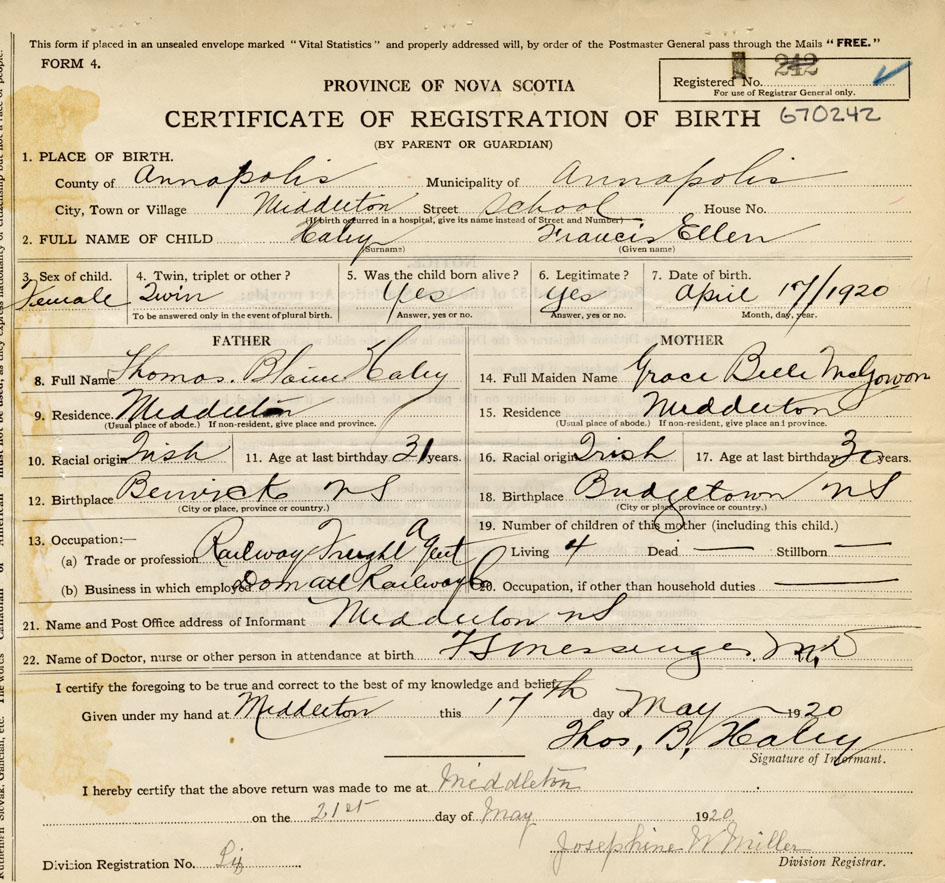 This form if placed in an unsealed envelope marked "Vital Statistics" and properly addressed will, by order of the Postmaster General pass through the Mails "FREE."
FORM 4.
242
Registered No.
For use of Registrar General only.
PROVINCE OF NOVA SCOTIA
CERTIFICATE OF REGISTRATION OF BIRTH 670242
(BY PARENT OR GUARDIAN)
1. PLACE OF BIRTH.
County of Annapolis Municipality of Annapolis
City, Town or Village Middleton Street School House No.
(If birth occurred in a hospital, give its name instead of Street and Number)
2. FULL NAME OF CHILD Haley Francis Ellen
(Surname) (Given name)
3. Sex of child. 4. Twin, triplet or other? 5. Was the child born alive? 6. Legitimate? 7. Date of birth.
Female Twin Yes Yes April 17/1920
To be answered only in the event of plural birth. Answer, yes or no. Answer, yes or no. Month, day, year.
FATHER MOTHER
8. Full Name Thomas. Blaine Haley 14. Full Maiden Name Grace Belle McGowon
9. Residence. Middleton 15. Residence Middleton
(Usual place of abode.) If non-resident, give place and province. (Usual place of abode.) If non-resident, give place and province.
10. Racial origin Irish 11. Age at last birthday 31 years. 16. Racial origin Irish 17. Age at last birthday 30 years.
12. Birthplace Berwick NS 18. Birthplace Bridgetown NS
(City or place, province or country.) (City or place, province or country.)
13. Occupation:— 19. Number of children of this mother (including this child.)
(a) Trade or profession Railway Freight Agent Living 4 Dead — Stillborn —
(b) Business in which employed Dom Atl Railway Co 20. Occupation, if other than household duties —
21. Name and Post Office address of Informant Middleton NS
22. Name of Doctor, nurse or other person in attendance at birth F S Messenger. M.D
I certify the foregoing to be true and correct to the best of my knowledge and belief.
Given under my hand at Middleton this 17th day of May 1920
Thos, B, Haley
Signature of Informant.
I hereby certify that the above return was made to me at Middleton
on the 21st day of May 1920
Josephine W Miller
Division Registration No. Division Registrar.